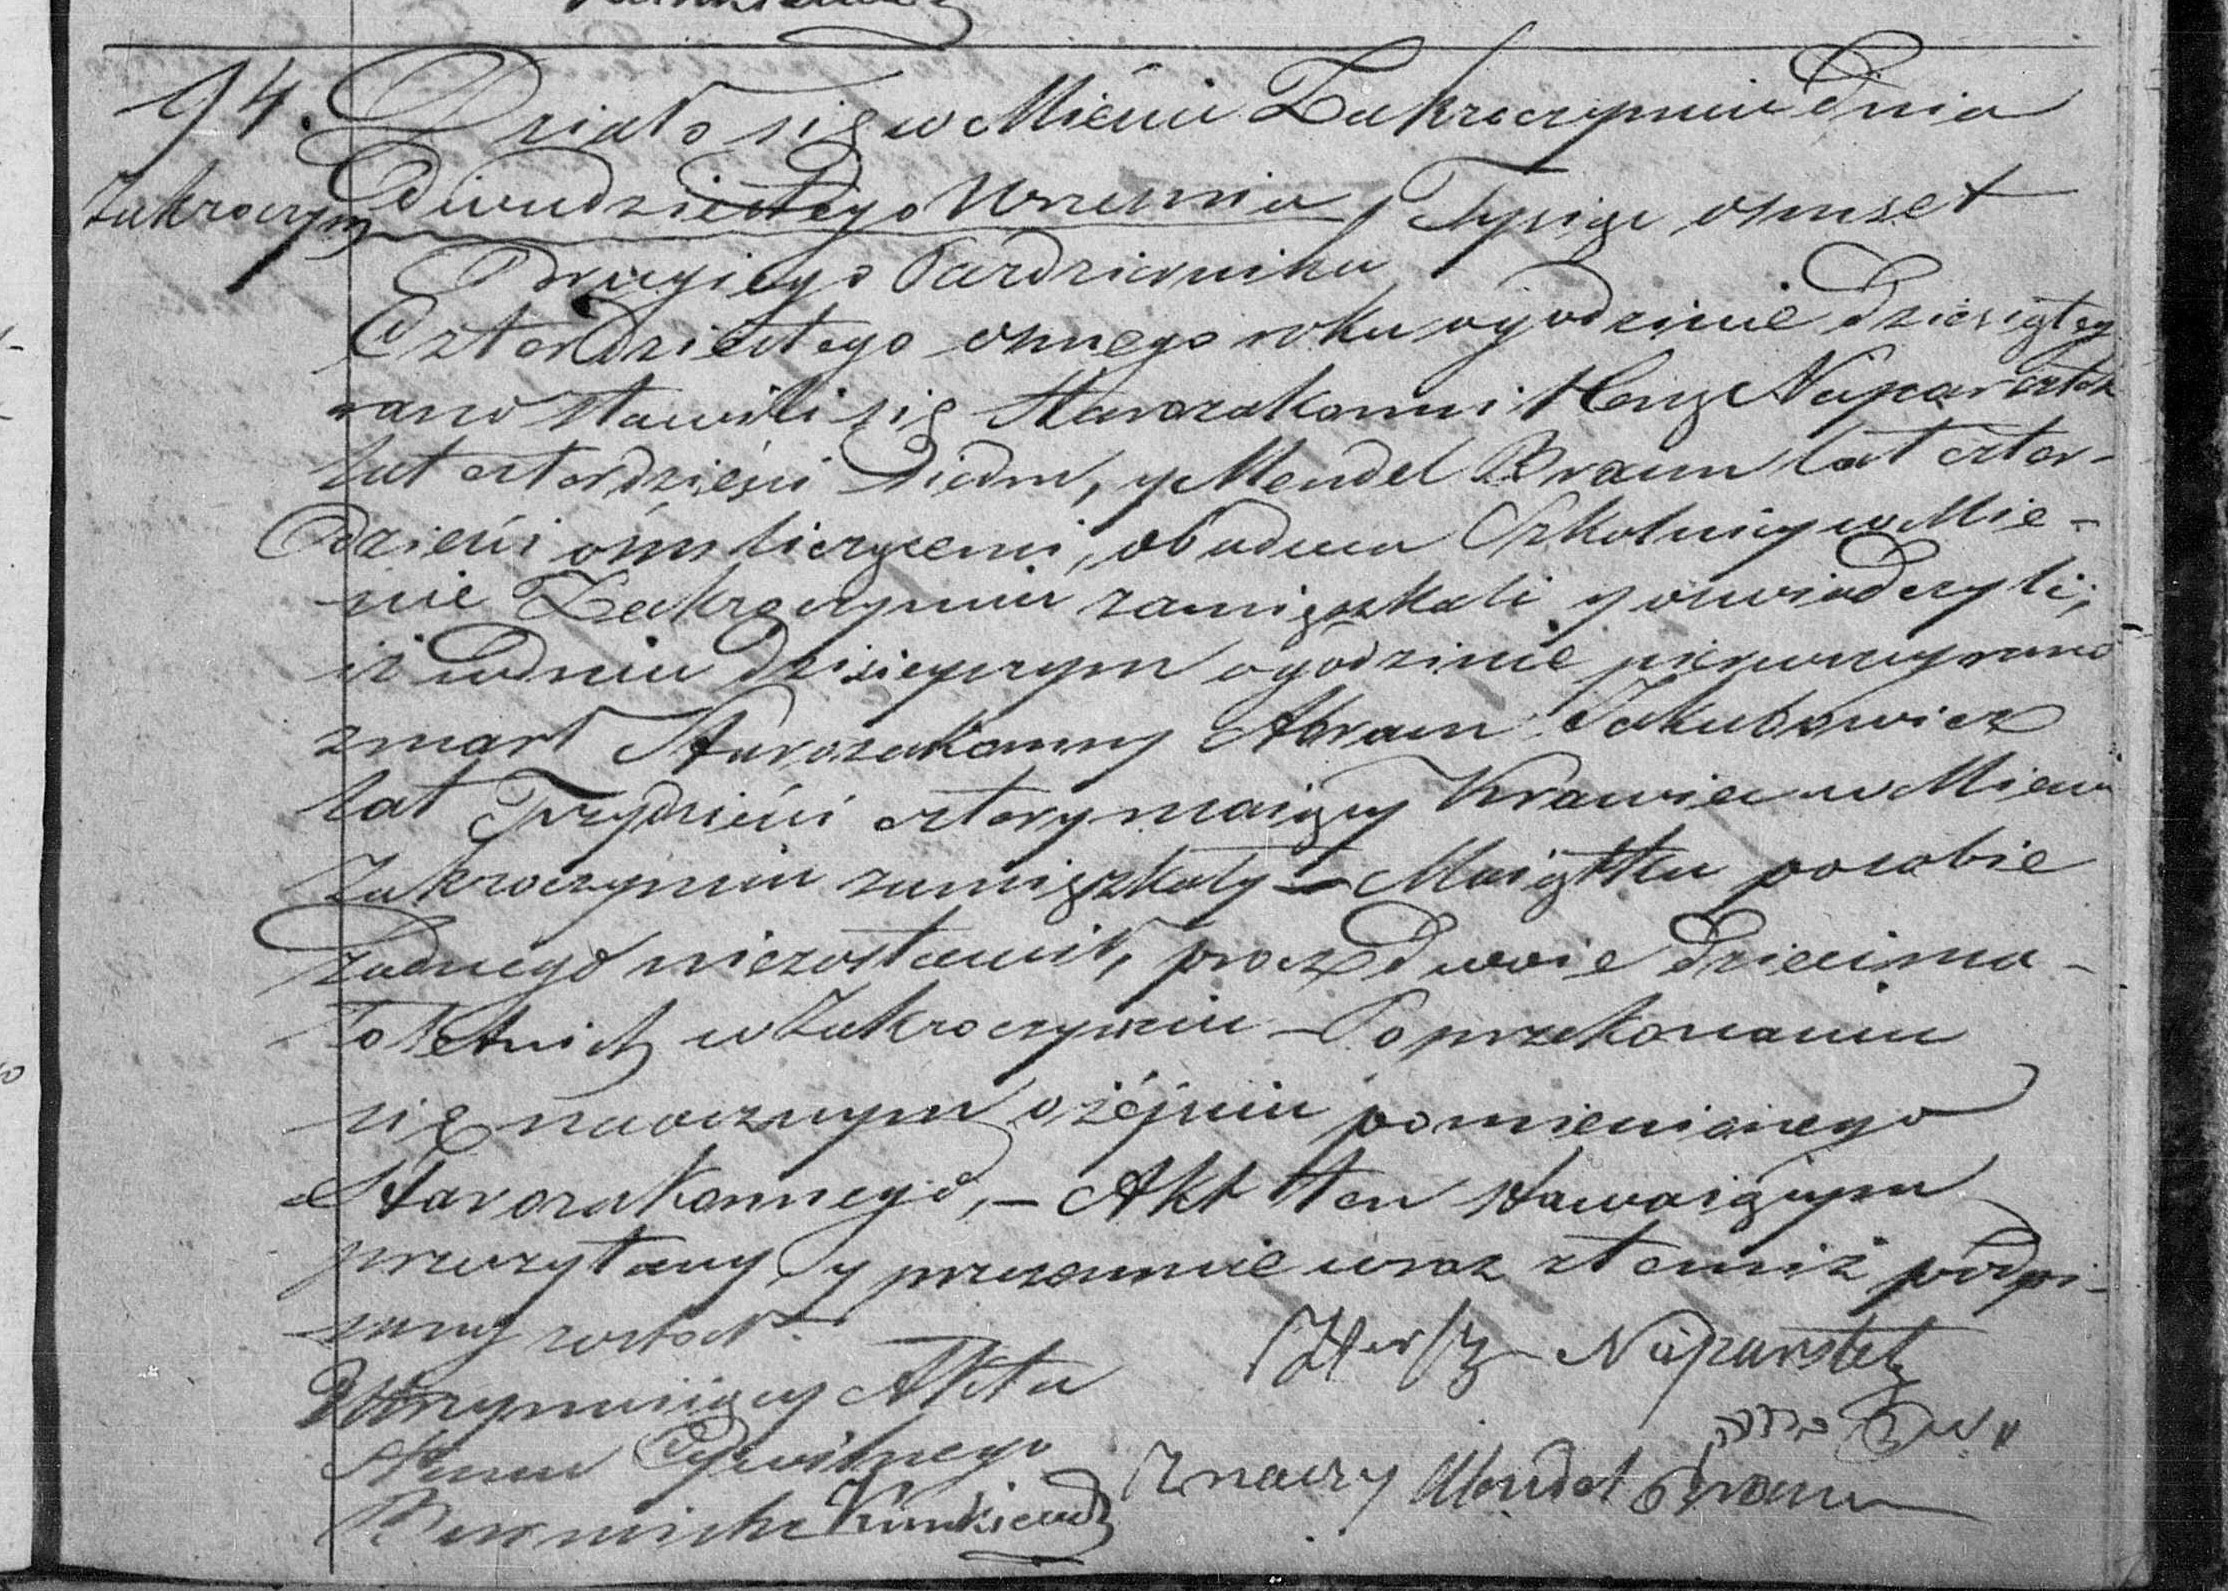 94. Działo się w Mieście Zakroczymiu Dnia
Zakroczym Dwudziestego Września, Tysiąc osmset
Drugiego Pazdziernika
Czterdziestego osmego roku o godzinie dziesiątey
rano stawili się Starozakonni Herz Naparstek
lat czterdzieści siedm, y Mendel Braun lat czter-
dzieści óśm liczącemi, obadwa Szkolnicy w Mie-
ście Zakroczymiu zamięszkali y oswiadczyli,
iż w dniu dzisieyszym o godzinie pierwszy rano
zmarł Starozakonny Abram Jakubowicz
lat Trzydzieści cztery maiący Krawiec w Mieście
Zakroczymiu zamięszkały – Maiątku po sobie
żadnego niezostawił, procz dwoie dzieci ma-
łoletnich w Zakroczymiu – Po przekonaniu
się naocznym o zéjściu pomienionego
Starozakonnego, – Akt ten stawaiącym
przeczytany y przezemnie wraz z temiż podpi-
sany został.
Utrzymuiący Akta Herszk Naparstek
Stanu Cywilnego
Znaczy Mendel Braun